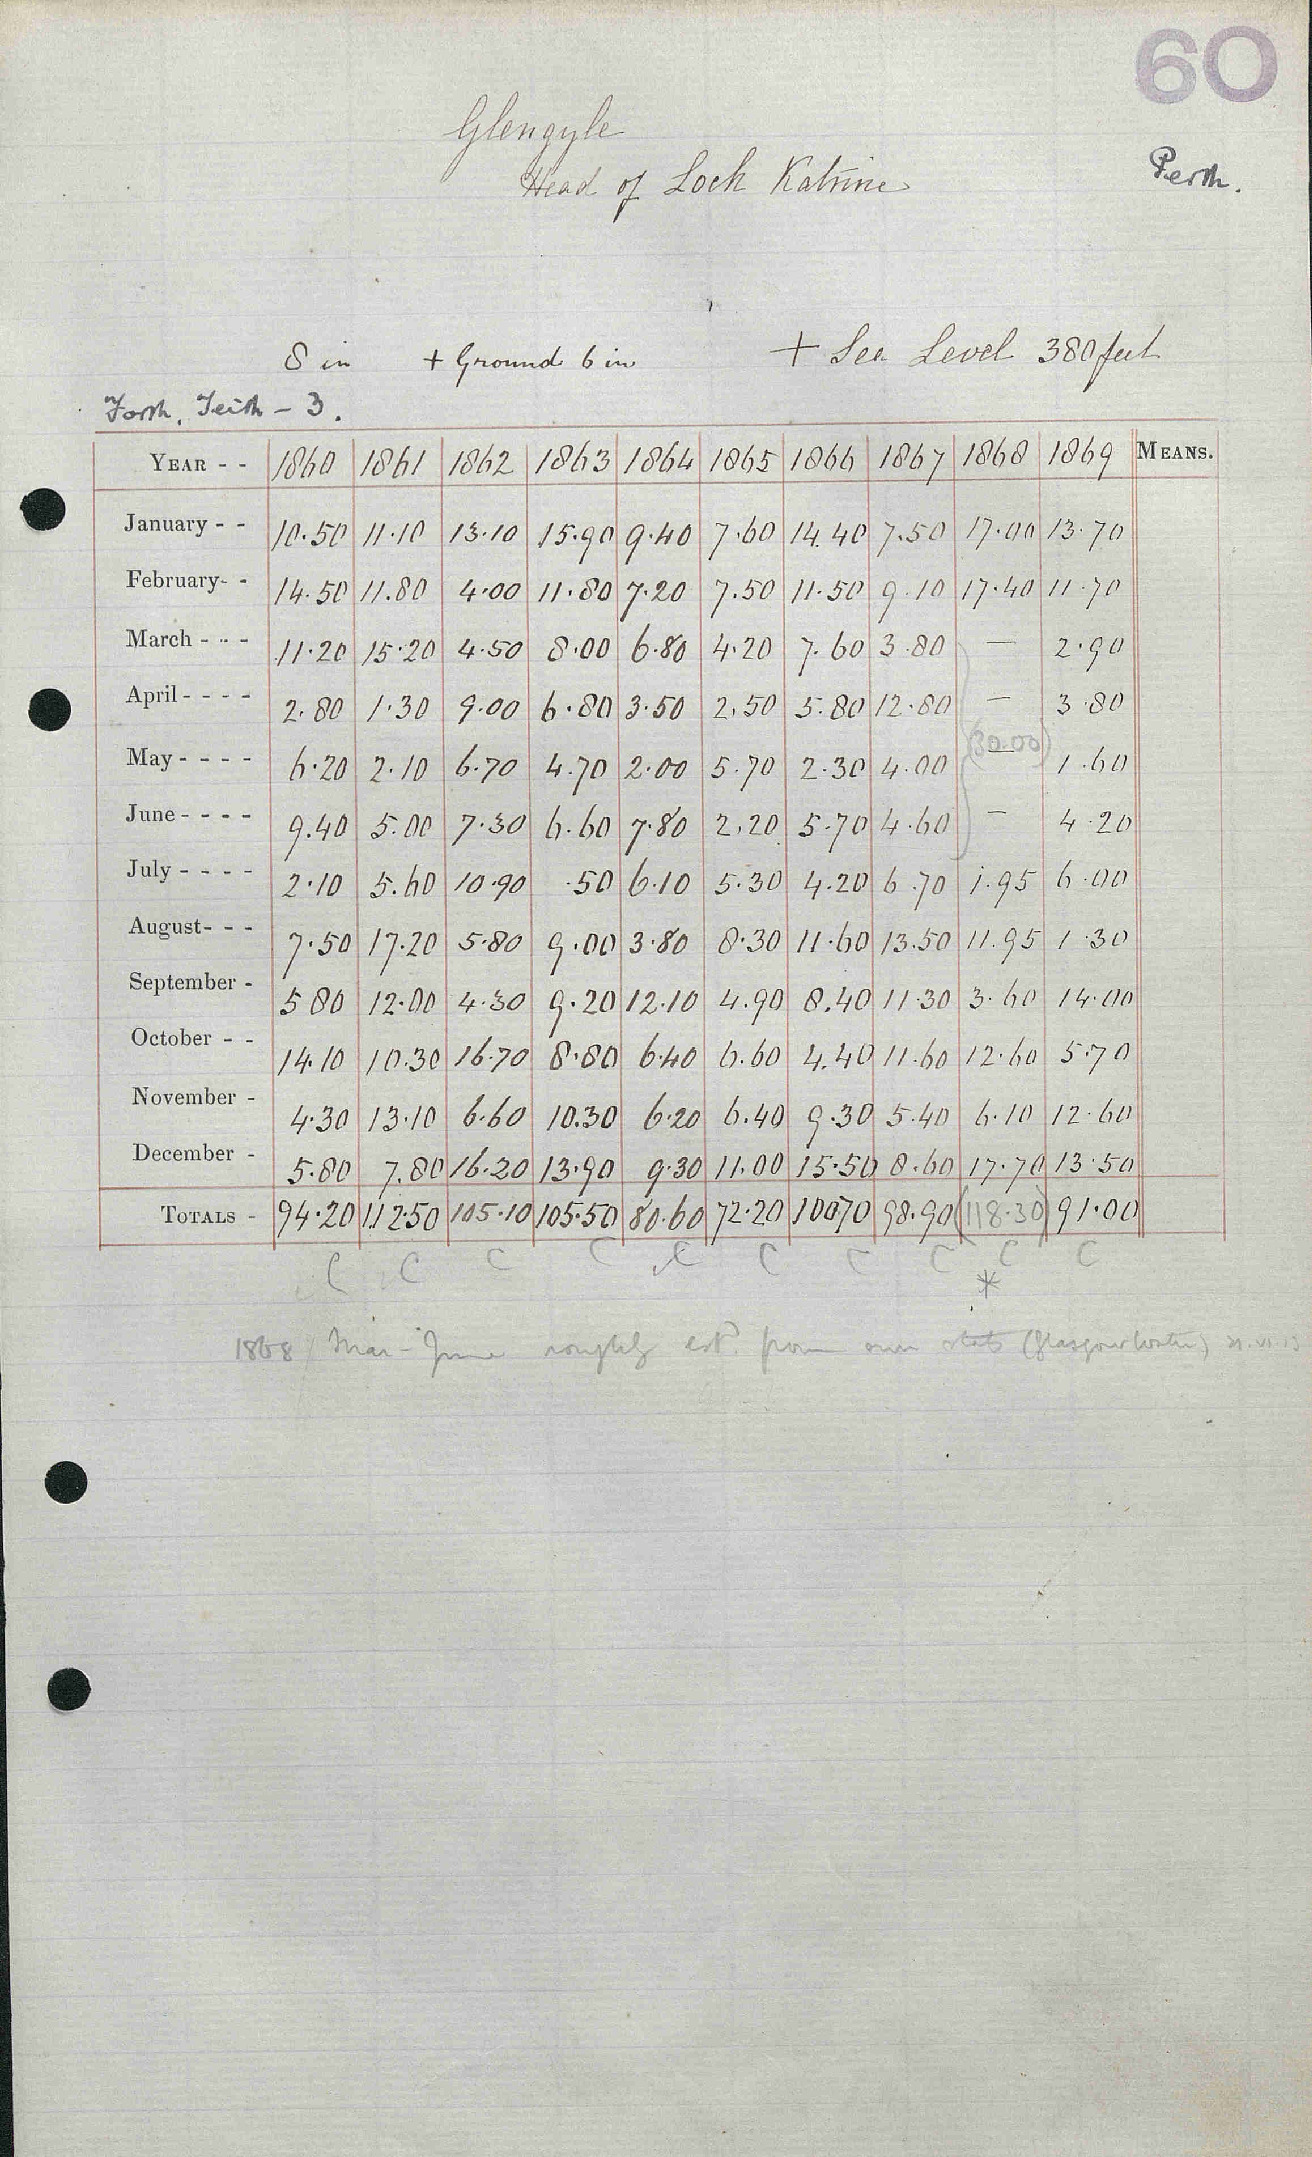 60
Glengyle
Head of Loch Katrine
Perth.
8 in + Ground 6 in + Sea Level 380 feet
Forth, Teith - 3.
YEAR - - 1860 1861 1862 1863 1864 1865 1866 1867 1868 1869 MEANS.
January - - 10.50 11.10 13.10 15.90 9.40 7.60 14.40 7.50 17.00 13.70
February- - 14.50 11.80 4.00 11.80 7.20 7.50 11.50 9.10 17.40 11.70
March - - - 11.20 15.20 4.50 8.00 6.80 4.20 7.60 3.80 — 2.90
April - - - - 2.80 1.30 9.00 6.80 3.50 2.50 5.80 12.80 — 3.80
May - - - - 6.20 2.10 6.70 4.70 2.00 5.70 2.30 4.00 (30.00) — 1.60
June - - - - 9.40 5.00 7.30 6.60 7.80 2.20 5.70 4.60 — 4.20
July - - - - 2.10 5.60 10.90 .50 6.10 5.30 4.20 6.70 1.95 6.00
August- - - 7.50 17.20 5.80 9.00 3.80 8.30 11.60 13.50 11.95 1.30
September - 5 80 12.00 4.30 9.20 12.10 4.90 8.40 11.30 3.60 14.00
October - - 14.10 10.30 16.70 8.80 6.40 6.60 4.40 11.60 12.60 5.70
November - 4.30 13.10 6.60 10.30 6.20 6.40 9.30 5.40 6.10 12.60
December - 5.80 7.80 16.20 13.90 9.30 11.00 15.50 8.60 17.70 13.50
TOTALS - 94.20 112.50 105.10 105.50 80.60 72.20 100 70 98.90 (118.30) 91.00
C C C C C C C C C C
*
1868 Mar - June roughly est. from own stats (Glasgow Water)